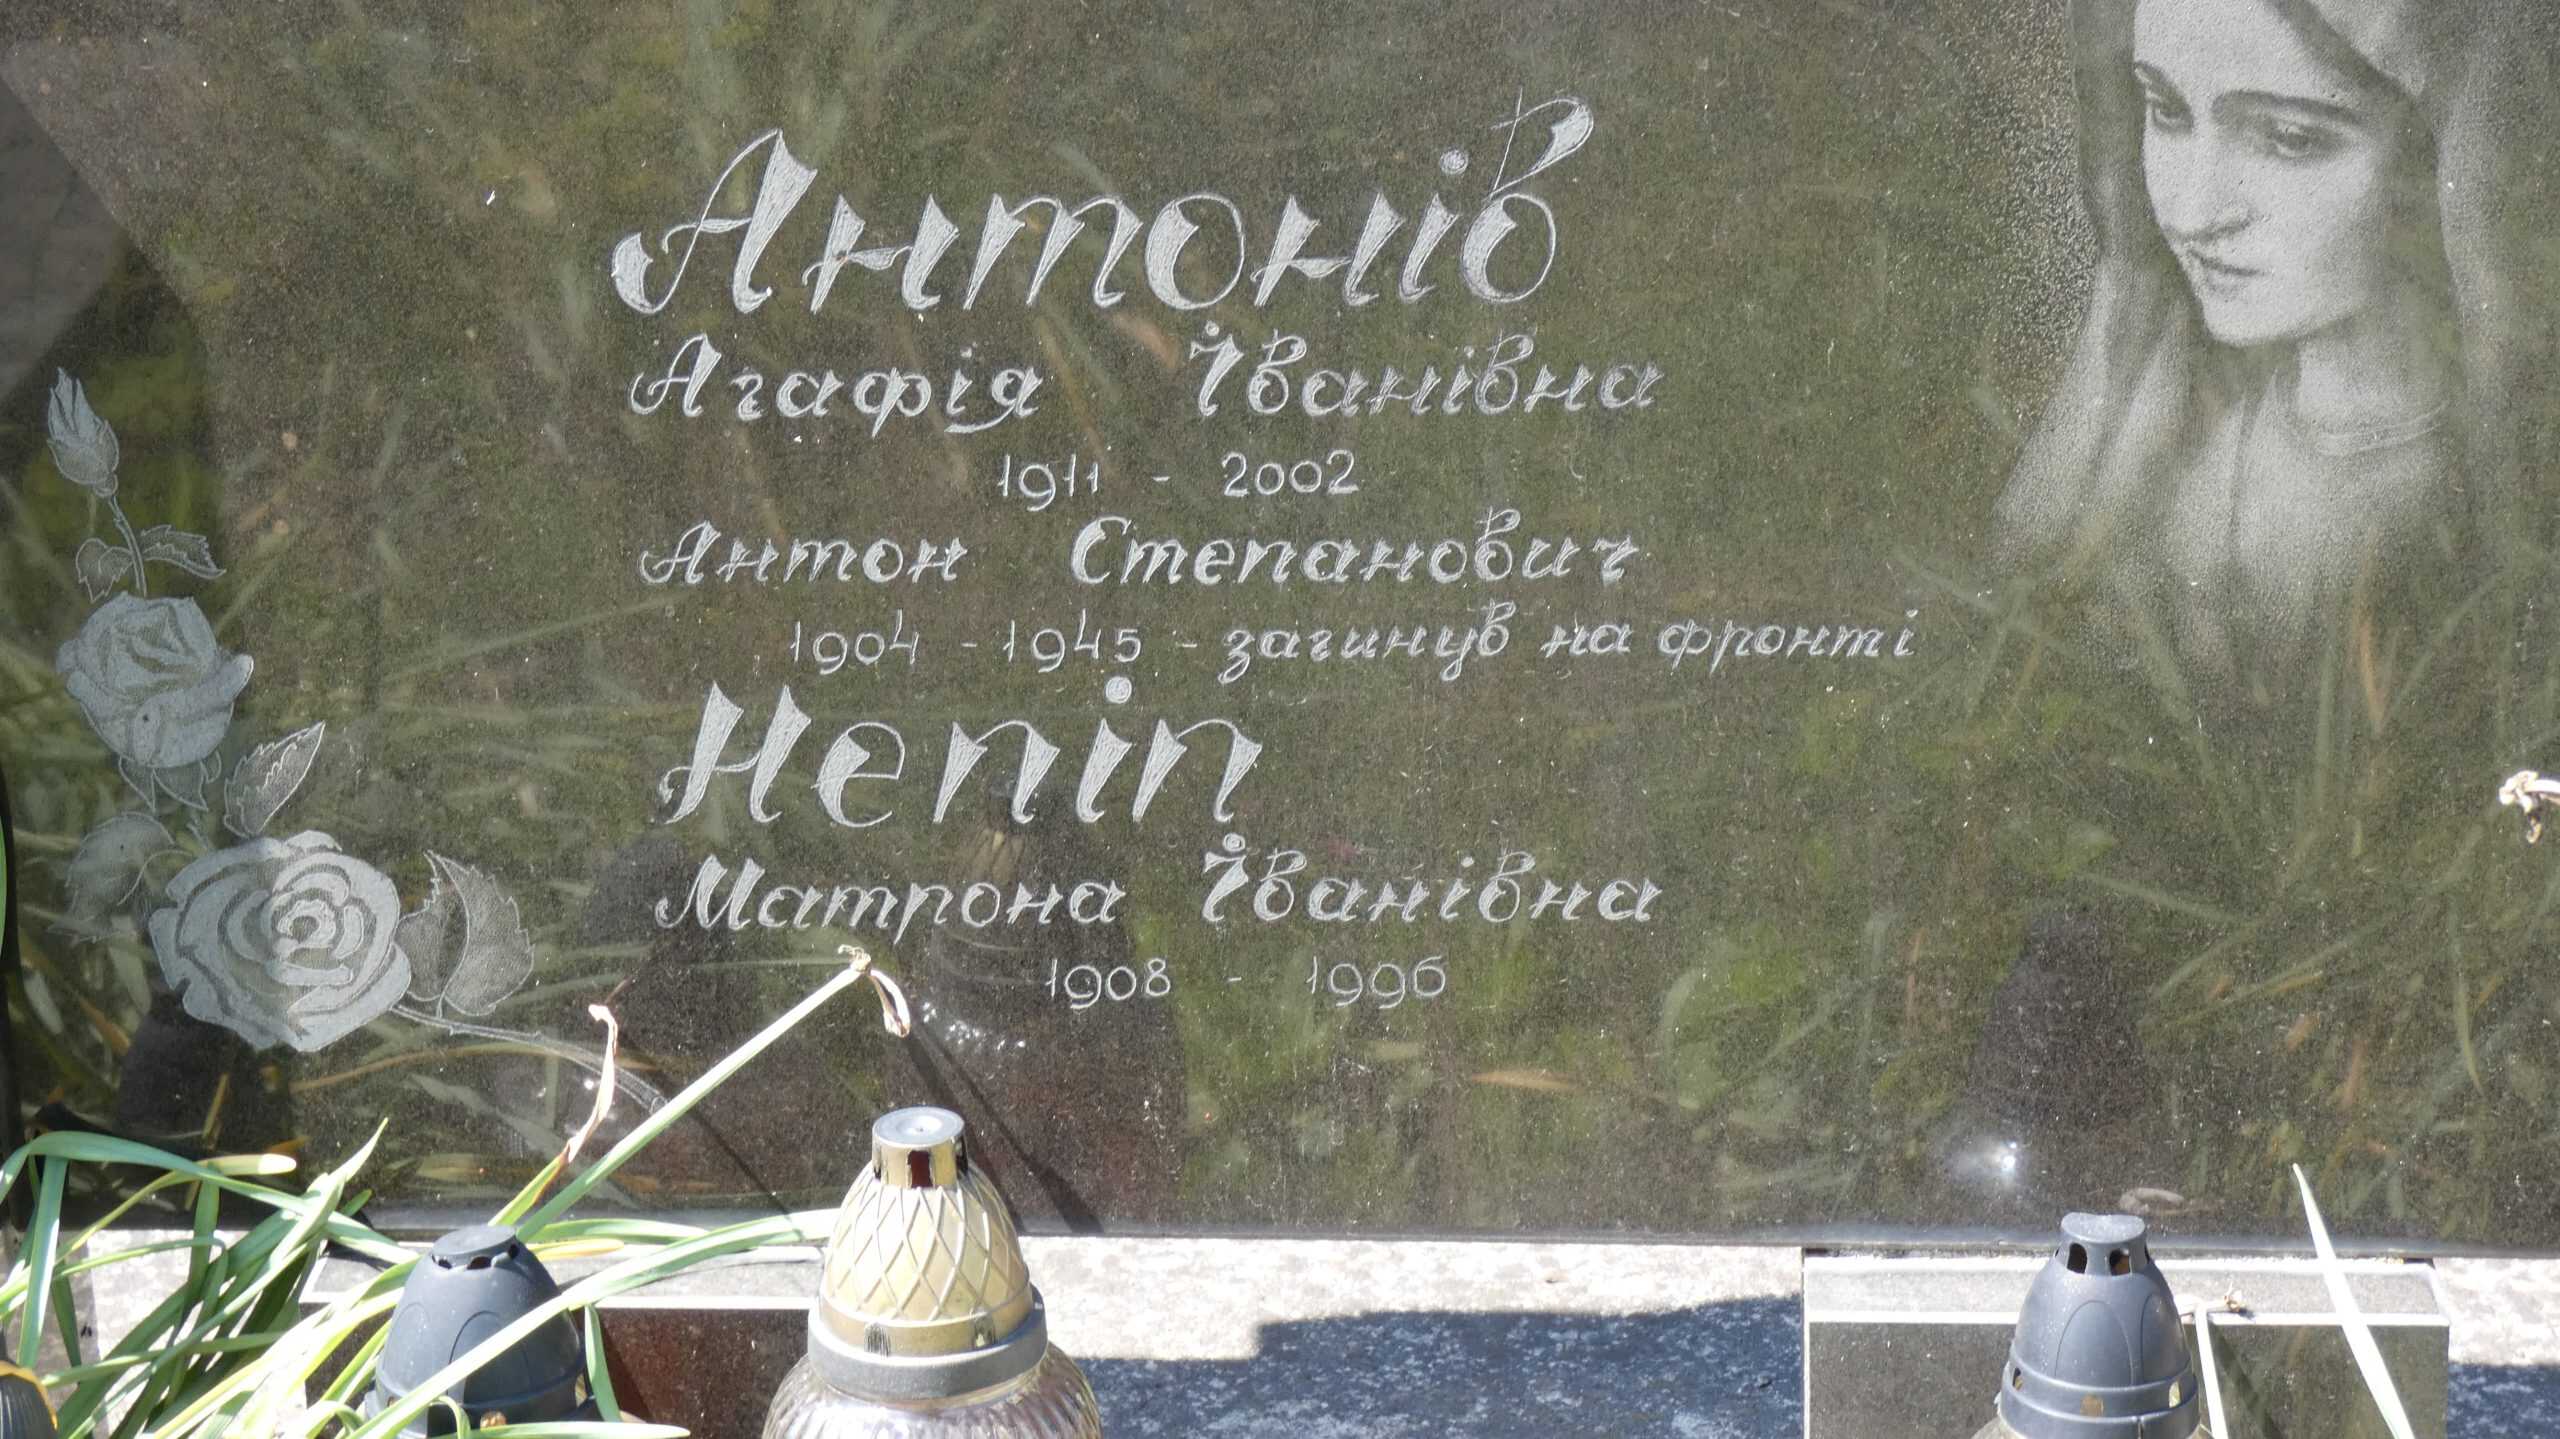 Антонів
Агафія Іванівна
1911 - 2002
Антон Степанович
1904 - 1945 - загинув на фронті
Непіп
Матрона Іванівна
1908 - 1996